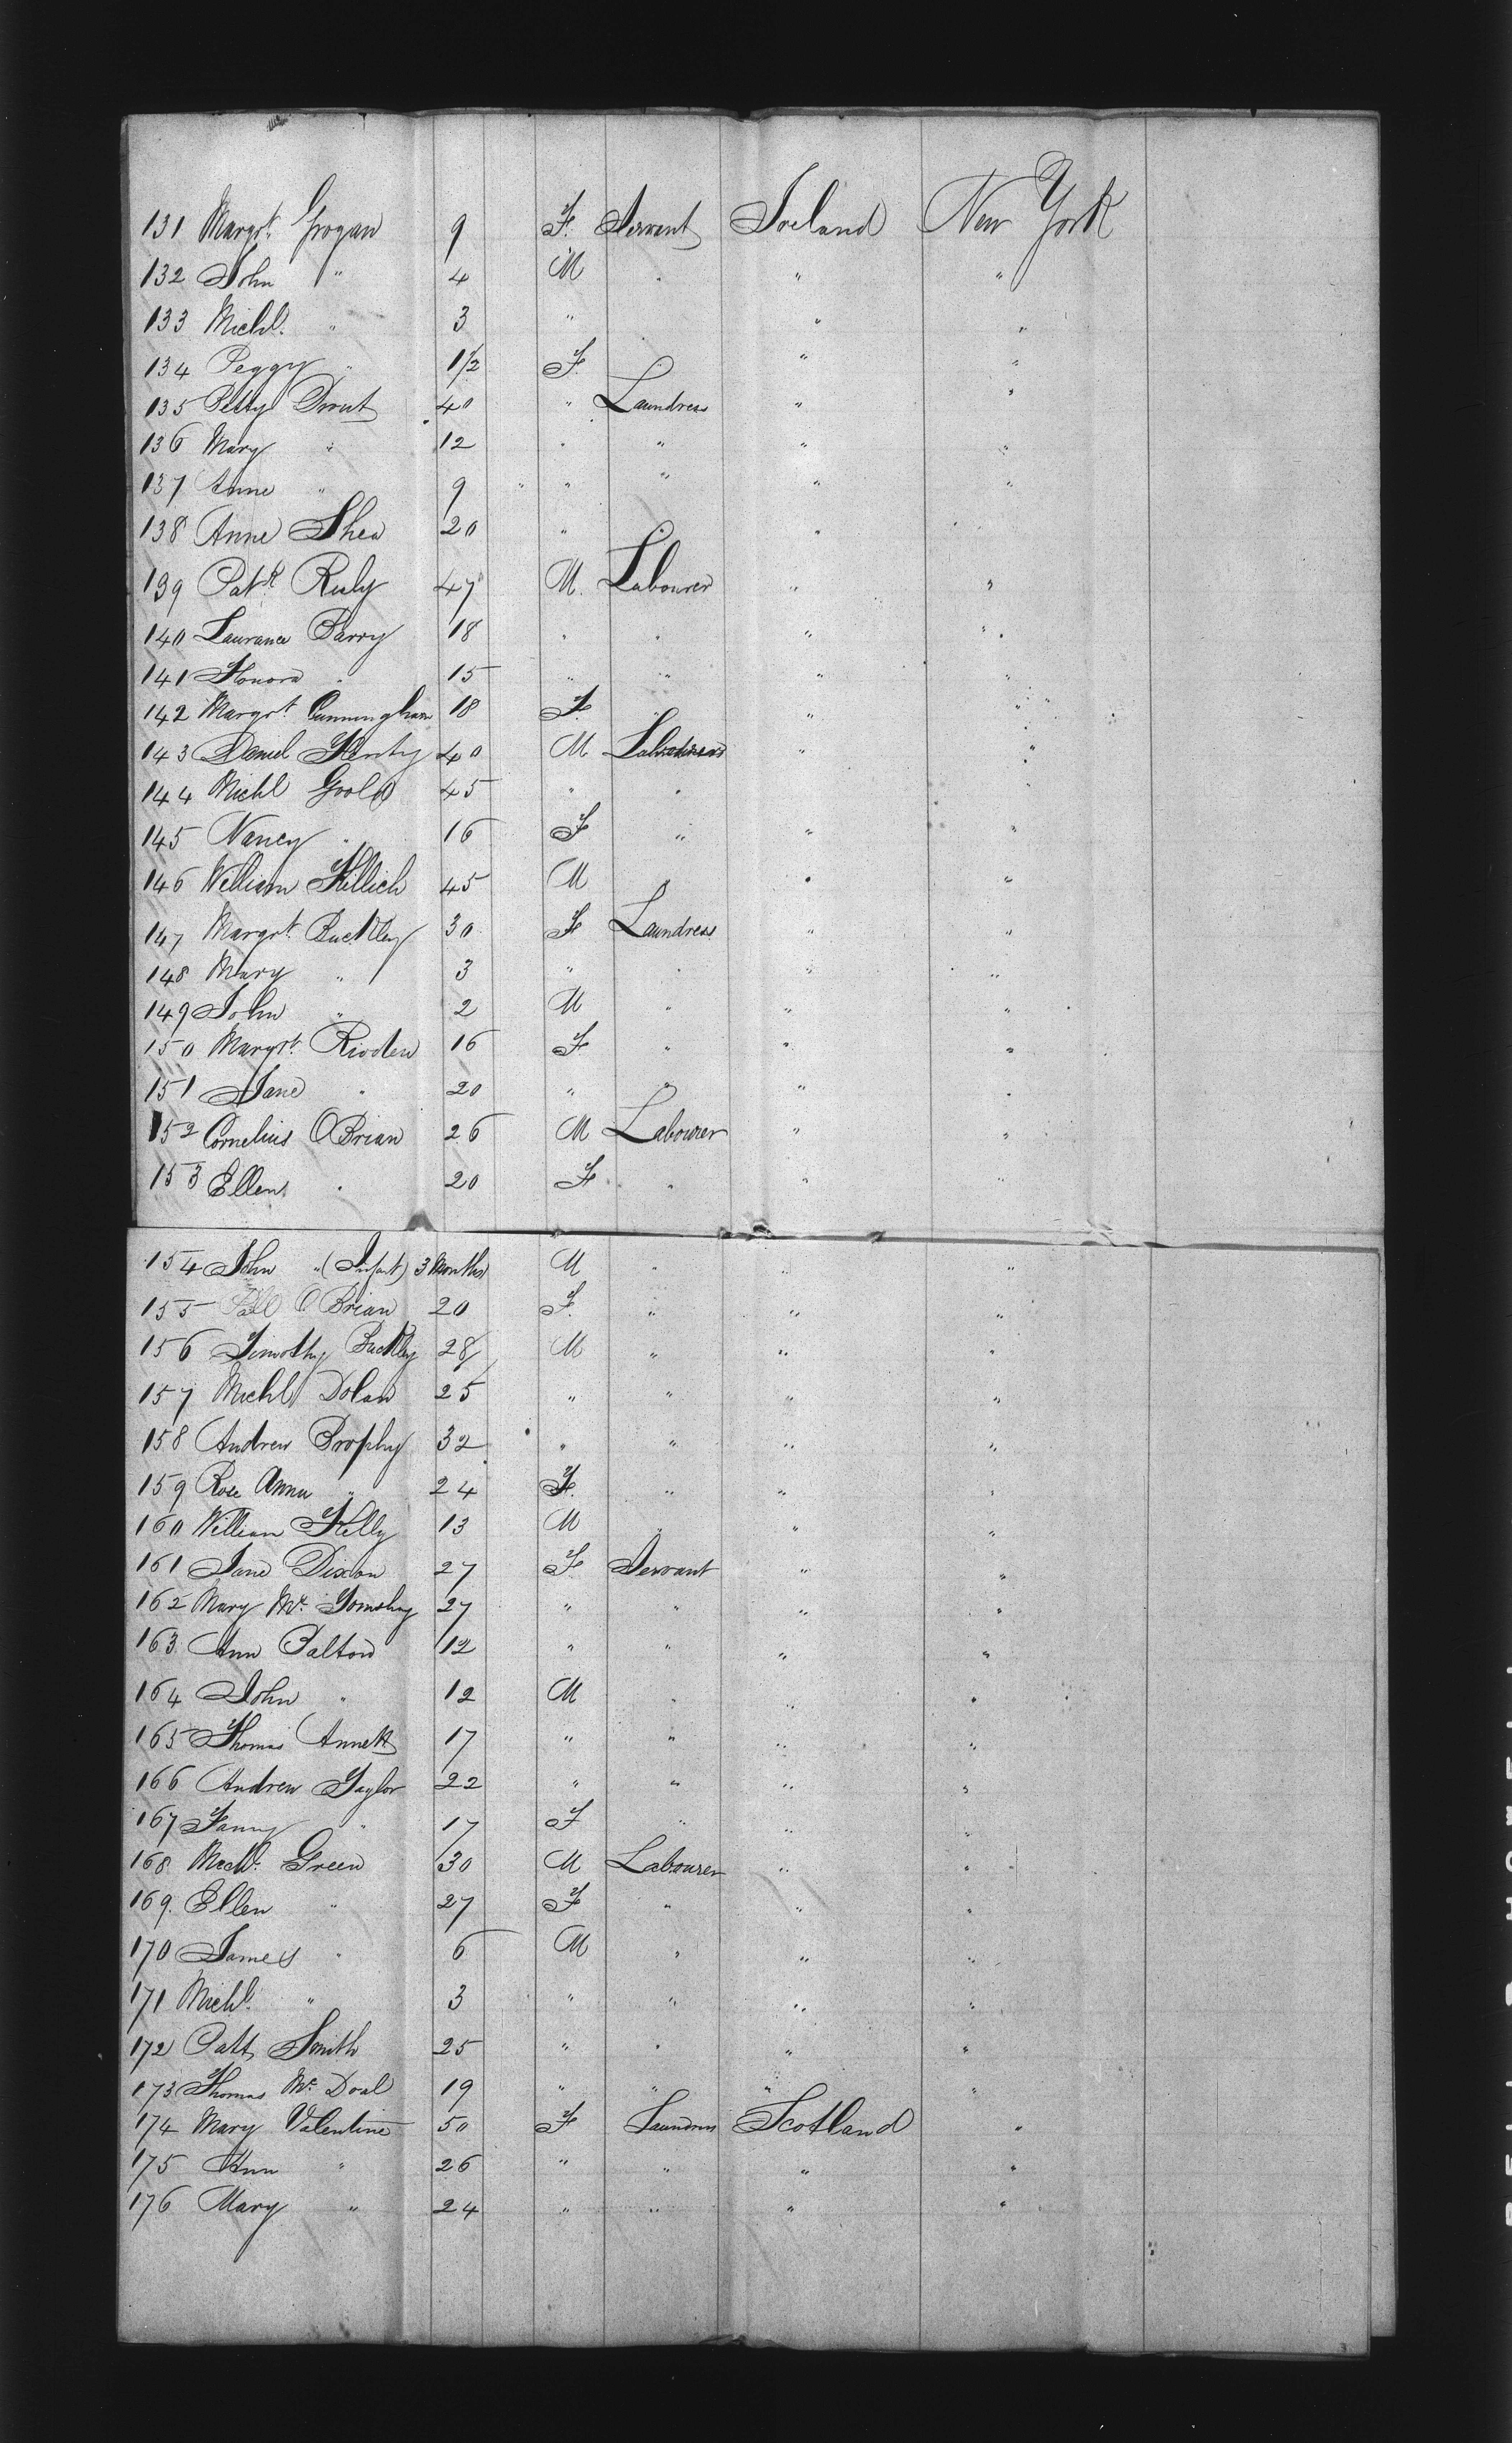 131 Margrt. Grogan 9 F. Servant Ireland New York
132 John " 4 M " " "
133 Michl. " 3 " " "
134 Peggy " 1 1/2 F. " "
135 Petty Drout 40 " Laundress " "
136 Mary " 12 " " " "
137 Anne " 9 " " " " "
138 Anne Shea 20 " " "
139 Patk Realy 47 M. Labourer " "
140 Laurance Barry 18 " " " "
141 Honora " 15 " " " "
142 Margrt Cunningham 18 F. " " "
143 Daniel Henty 40 M " "
144 Michl Goold 45 " " "
145 Nancy " 16 F " " "
146 William Killich 45 M " " "
147 Margrt. Buckley 30 F Laundress " "
148 Mary " 3 " " " "
149 John " 2 M " " "
150 Margrt. Rioden 16 F " " "
151 Jane " 20 " " " "
152 Cornelius OBrian 26 M Labourer " "
153 Ellen " 20 F. " " "
154 John " (Infant) 3 Months M " " "
155 OBrian 20 F. " " "
156 Timothy Buckley 28 M " " "
157 Michl Dolan 25 " " " "
158 Andrew Brophy 32 " " " "
159 Rose Anna " 24 F. " " "
160 William Kelly 13 M " " "
161 Jane Dixon 27 F Servant " "
162 Mary Mc. 27 " " " "
163 Ann Dalton 12 " " " "
164 John " 12 M " " "
165 Thomas Annett 17 " " " "
166 Andrew Taylor 22 " " " "
167 Fanny " 17 F " " "
168 Michl. Green 30 M Labourer " "
169. Ellen " 27 F " " "
170 James " 6 M " " "
171 Michl. " 3 " " " "
172 Patt Smith 25 " " " "
173 Thomas Mc. Doal 19 " " " "
174 Mary Valentine 50 F Laundress Scotland "
175 Ann " 26 " " " "
176 Mary " 24 " " " "